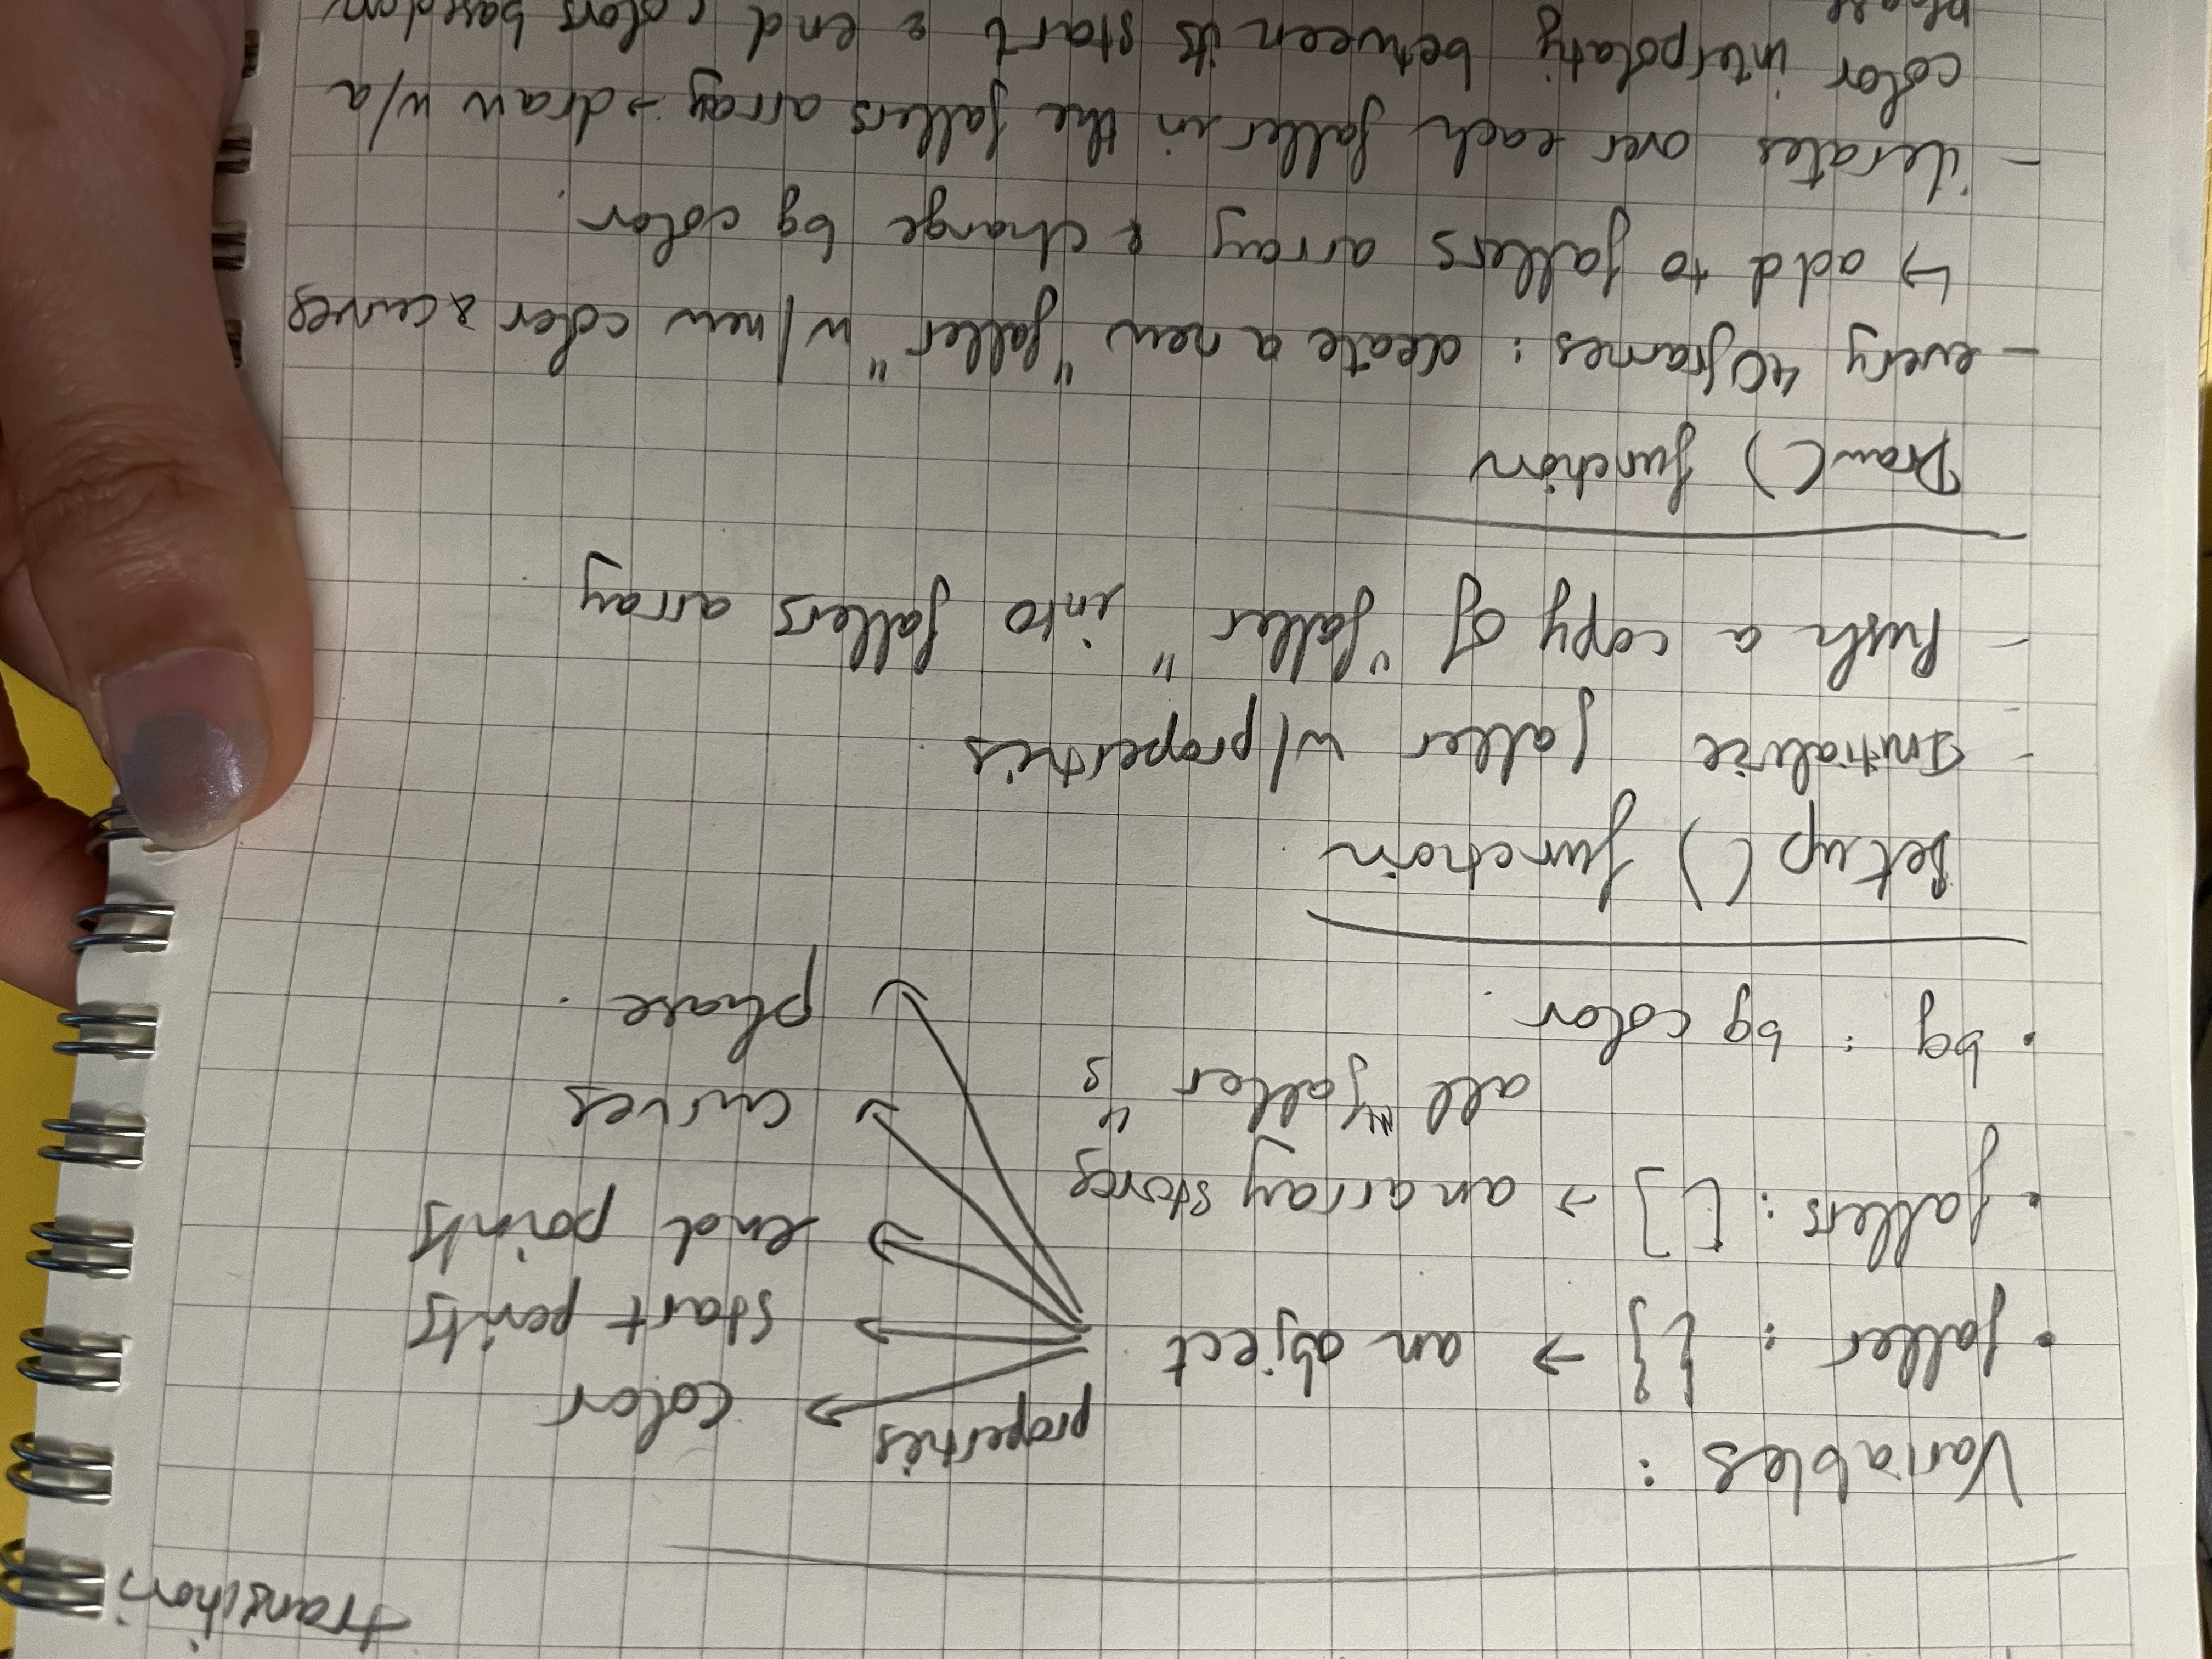 transition
Variables :
• faller : { } → an object
properties
color
start points
end points
curves
phase.
• fallers : [ ] → an array stores
all "faller"s
• bg : bg color.
Setup ( ) function.
- Initialize faller w/ properties
- Push a copy of "faller" into fallers array
Draw ( ) function
- every 40 frames : create a new "faller" w/ new color & curves
↳ add to fallers array & change bg color.
- iterates over each faller in the fallers array → draw w/ a
color interpolatig between its start & end colors based on
phase